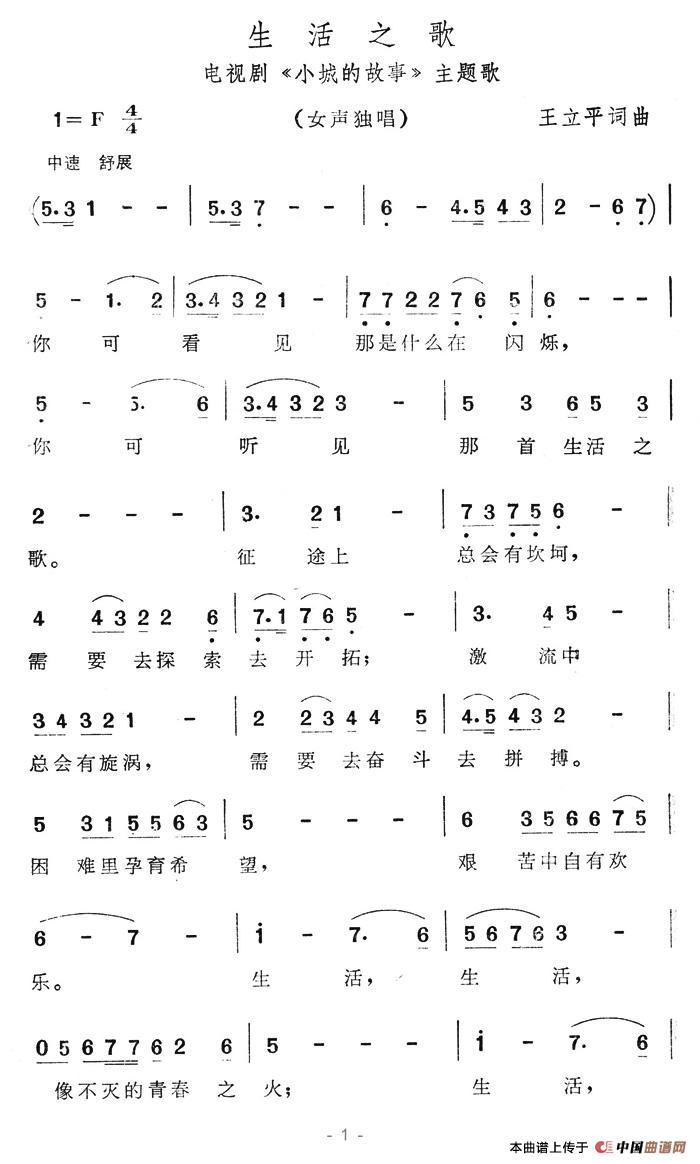 生活之歌
电视剧《小城的故事》主题歌
1=F 4/4 (女声独唱) 王立平词曲
中速 舒展
(5.3 1 - - | 5.3 7 - - | 6 - 4.5 4 3 | 2 - 6 7) |
5 - 1. 2 | 3.4 3 2 1 - | 7 7 2 2 7 6 5 | 6 - - - |
你可看见那是什么在闪烁,
5 - 5. 6 | 3.4 3 2 3 - | 5 3 6 5 3 |
你可听见那首生活之
2 - - - | 3. 2 1 - | 7 3 7 5 6 - |
歌。征途上总会有坎坷,
4 4 3 2 2 6 | 7.1 7 6 5 - | 3. 4 5 - |
需要去探索去开拓;激流中
3 4 3 2 1 - | 2 2 3 4 4 5 | 4.5 4 3 2 - |
总会有旋涡,需要去奋斗去拼搏。
5 3 1 5 5 6 3 | 5 - - - | 6 3 5 6 6 7 5 |
困难里孕育希望,艰苦中自有欢
6 - 7 - | i - 7. 6 | 5 6 7 6 3 - |
乐。生活,生活,
0 5 6 7 7 6 2 6 | 5 - - i | i - 7. 6 |
像不灭的青春之火;生活,
- 1 -
本曲谱上传于 中国曲谱网